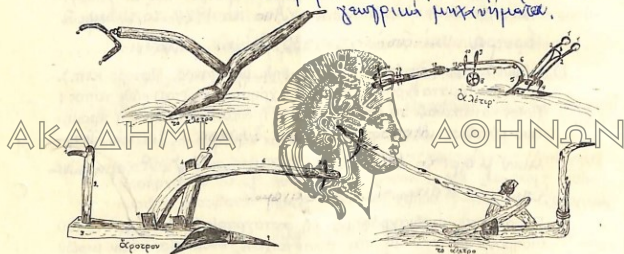 γεωργικὰ μηχανήματα.
τὸ ἀλέτρο
ἀλέτρι
ΑΚΑΔΗΜΙΑ ΑΘΗΝΩΝ
ἄροτρον
τὸ ἄλετρο